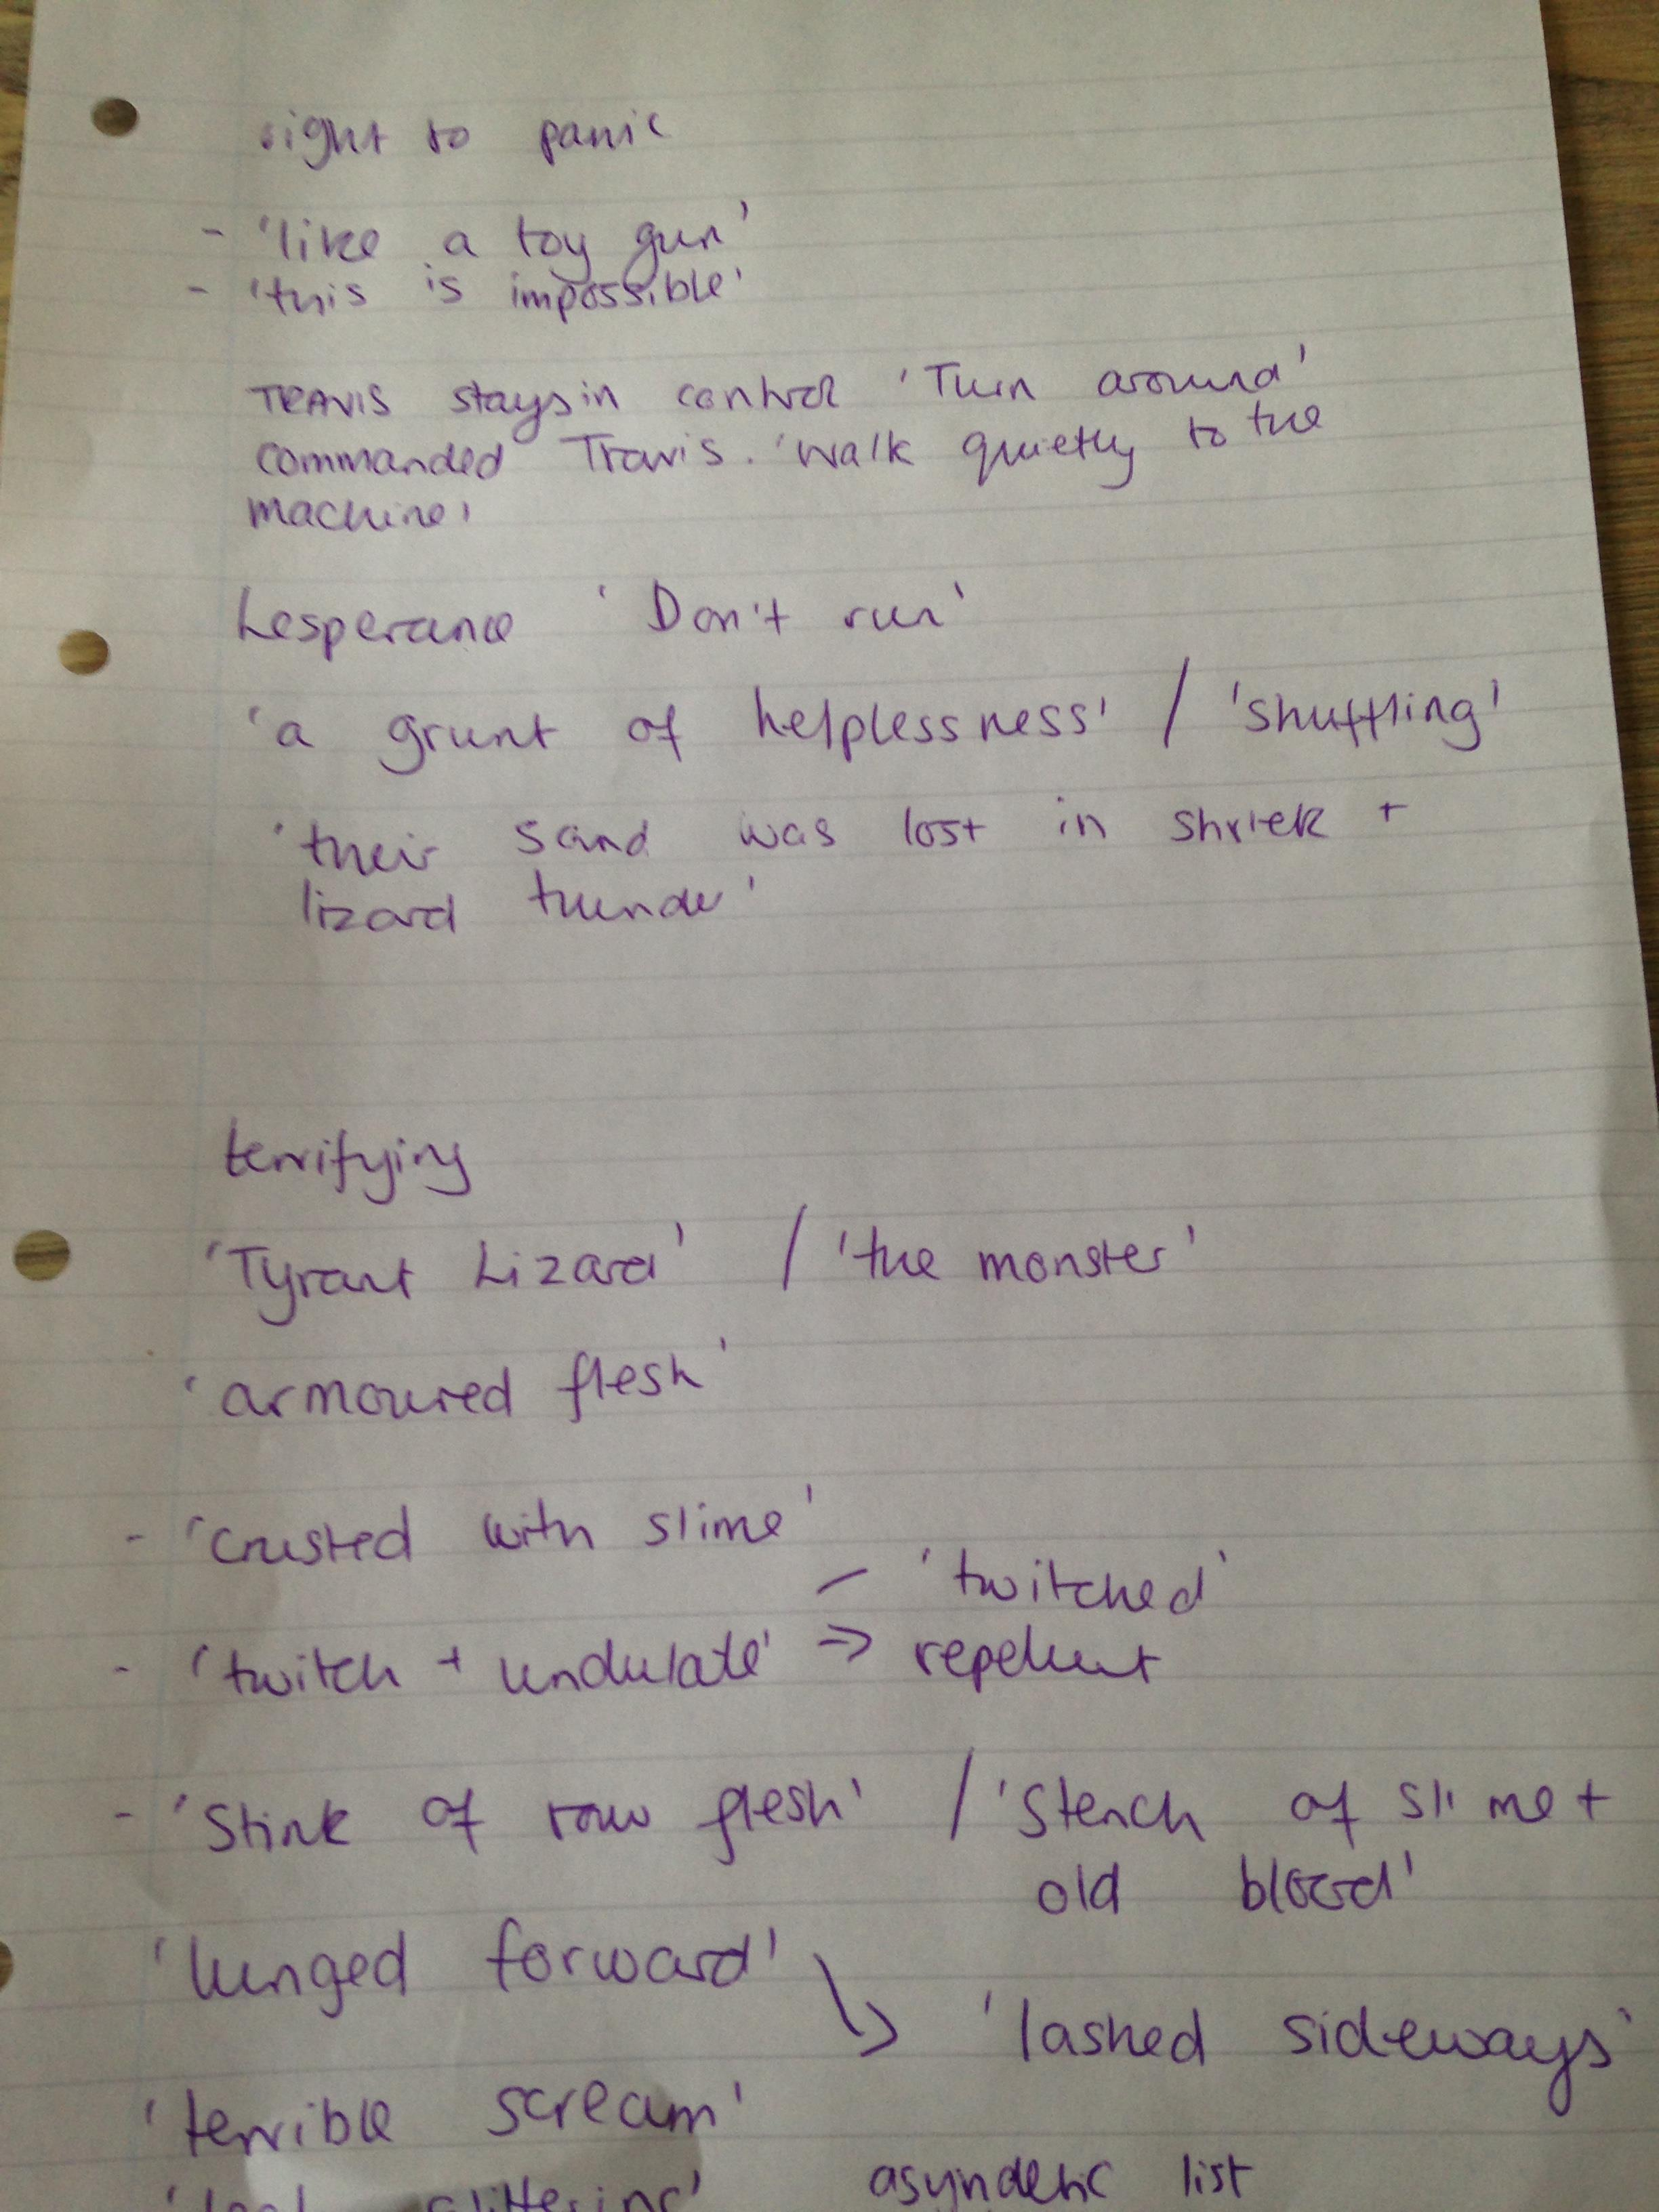 right to panic
- 'like a toy gun'
- 'this is impossible'
TRAVIS stays in control 'Turn around'
commanded Travis. 'walk quietly to the
machine'
Lesperance 'Don't run'
'a grunt of helplessness' / 'shuffling'
'their sand was lost in shriek +
lizard thunder'
terrifying
'Tyrant Lizard' / 'the monster'
'armoured flesh'
- 'crusted with slime'
- 'twitched'
- 'twitch + undulate' => repellent
- 'Stink of raw flesh' / 'Stench of slime +
old blood'
'lunged forward'
'lashed sideways'
'terrible scream'
glittering' asyndetic list